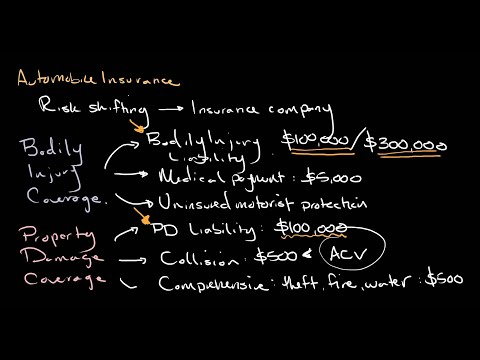 Automobile Insurance
Risk shifting → Insurance company
Bodily Injury Coverage.
Bodily Injury Liability $100,000 / $300,000
Medical payment: $5,000
Uninsured motorist protection
Property Damage Coverage
PD Liability: $100,000
Collision: $500 < ACV
Comprehensive: theft, fire, water: $500